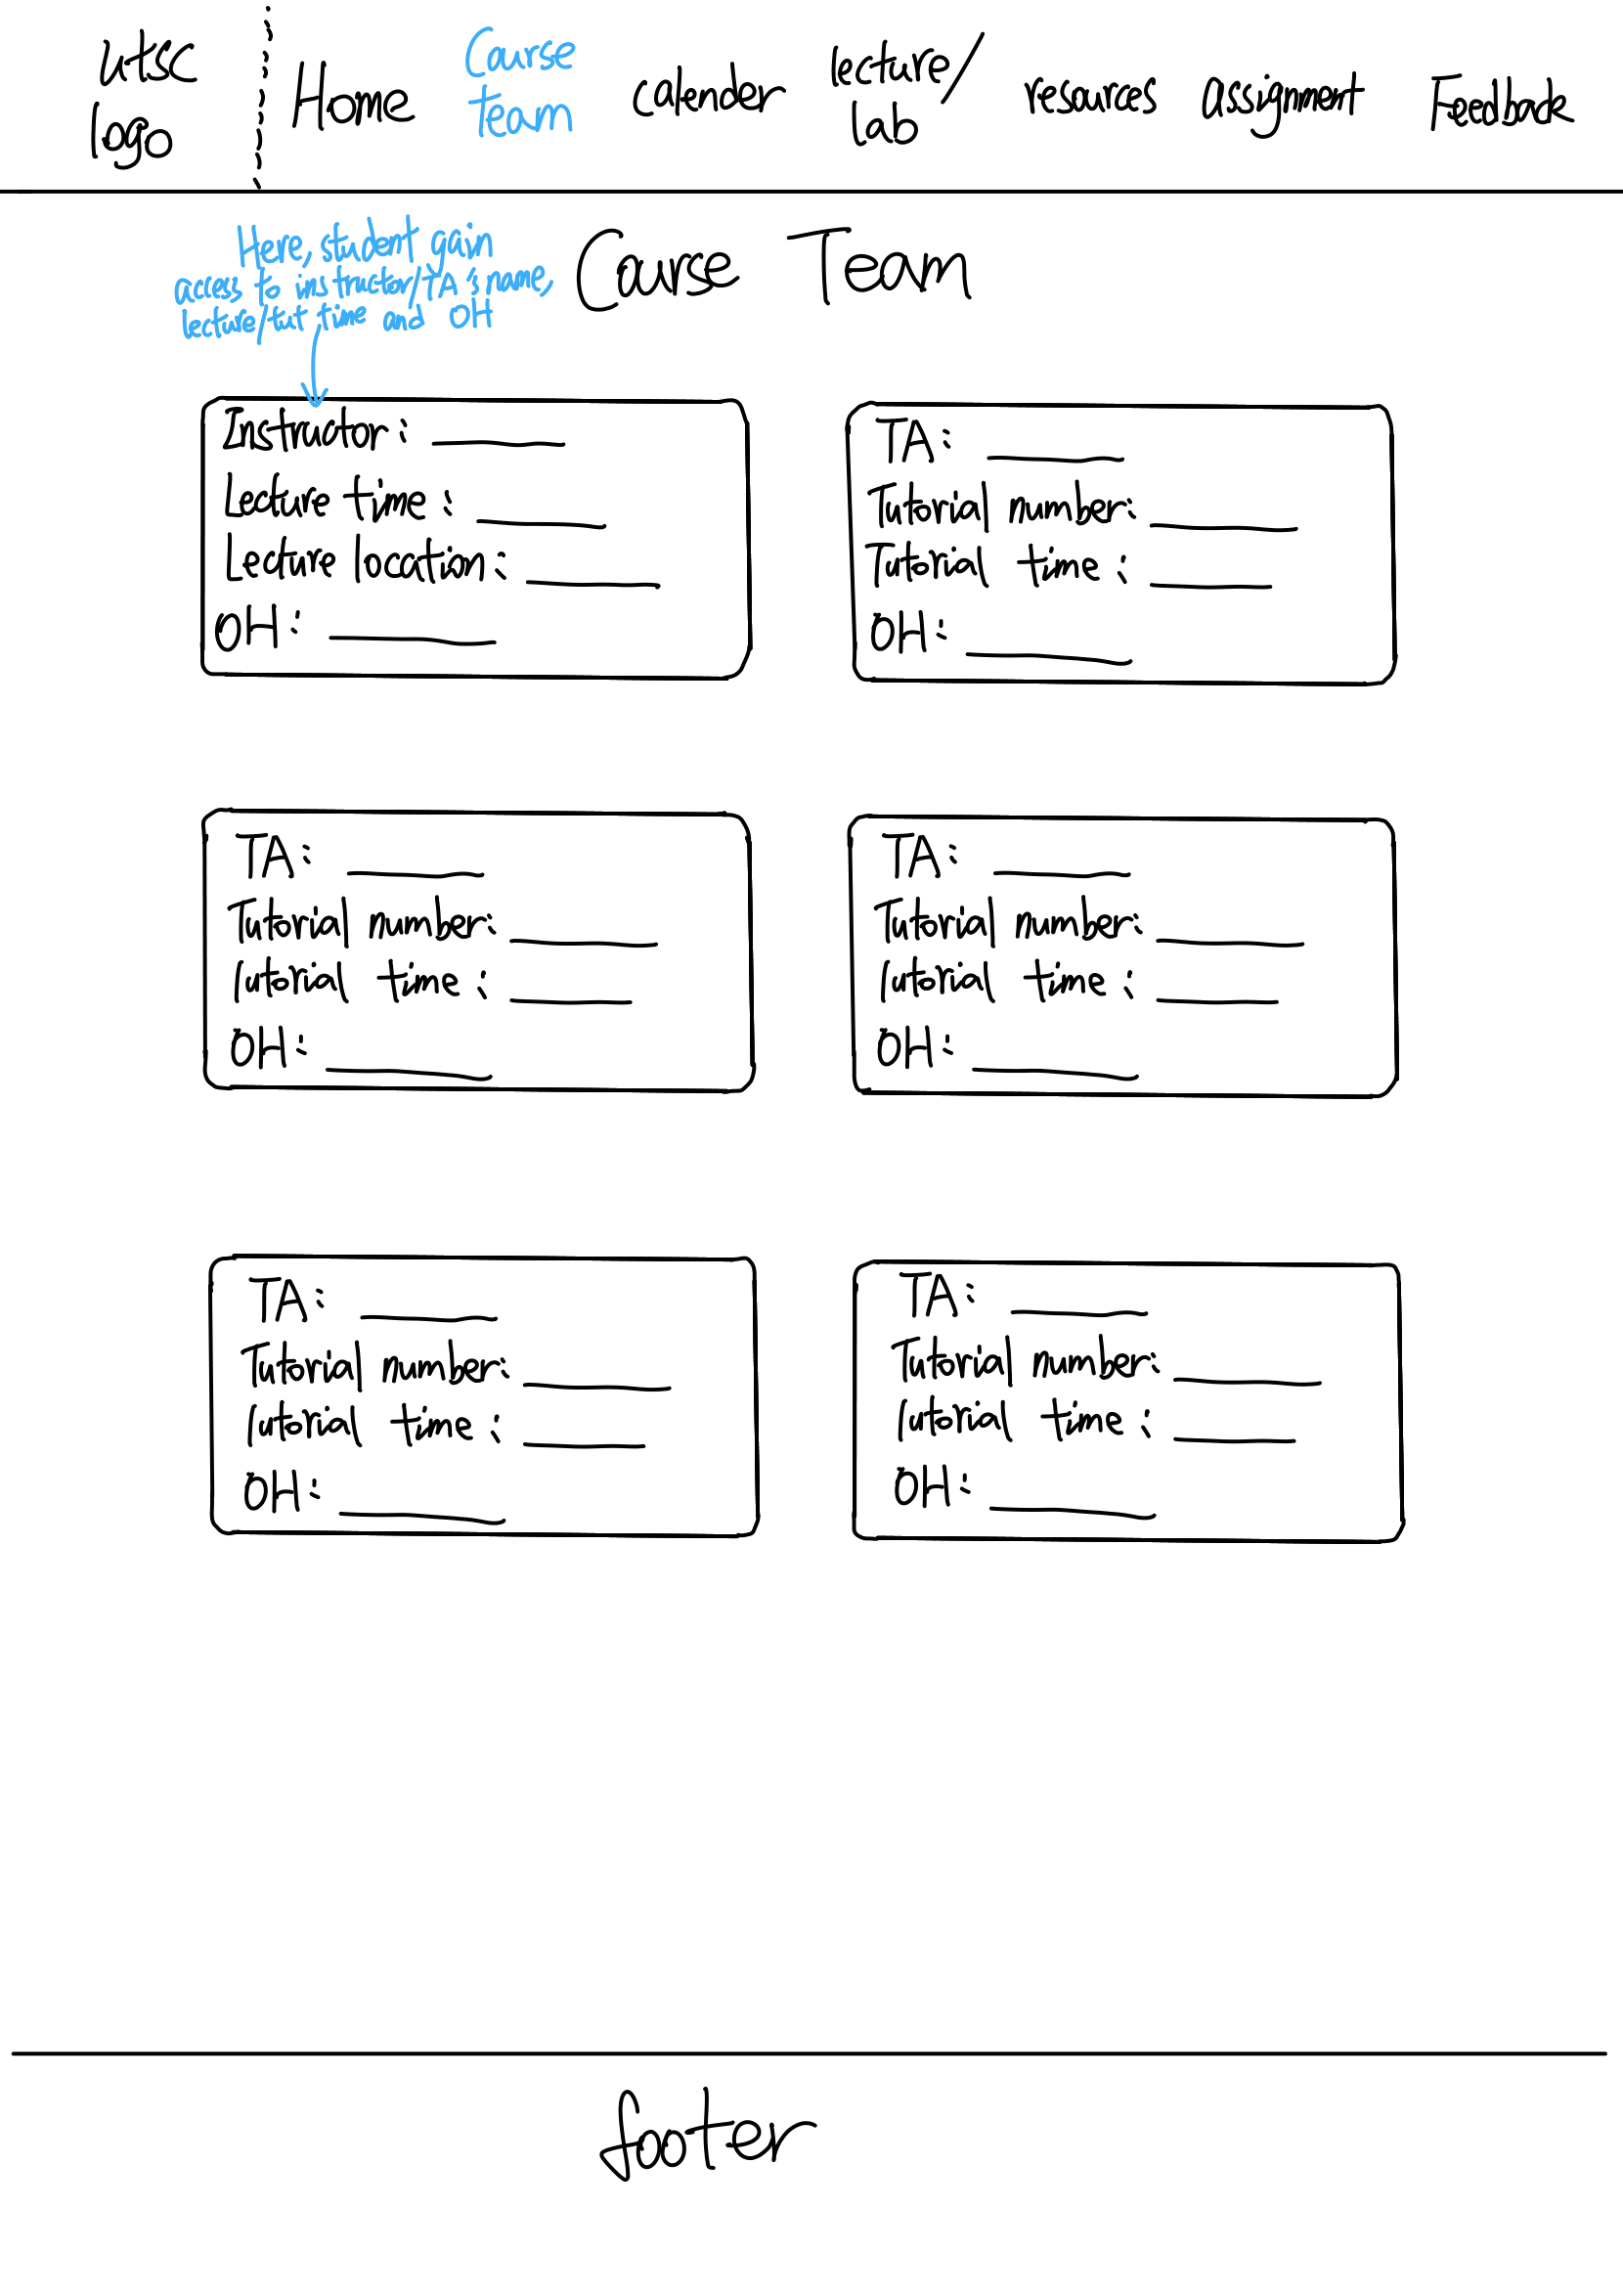 utsc
logo
Home
Course
team
calender
lecture/
lab
resources
assignment
Feedback
Here, student gain
access to instructor/TA's name,
lecture/tut time and OH
Course Team
Instructor:
Lecture time:
Lecture location:
OH:
TA:
Tutorial number:
Tutorial time:
OH:
TA:
Tutorial number:
Tutorial time:
OH:
TA:
Tutorial number:
Tutorial time:
OH:
TA:
Tutorial number:
Tutorial time:
OH:
TA:
Tutorial number:
Tutorial time:
OH:
footer